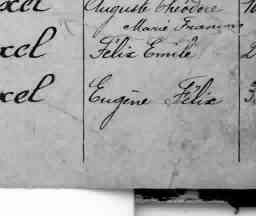 Auguste Théodore
Marie Francine
xel Félix Emile
xel Eugène Félix